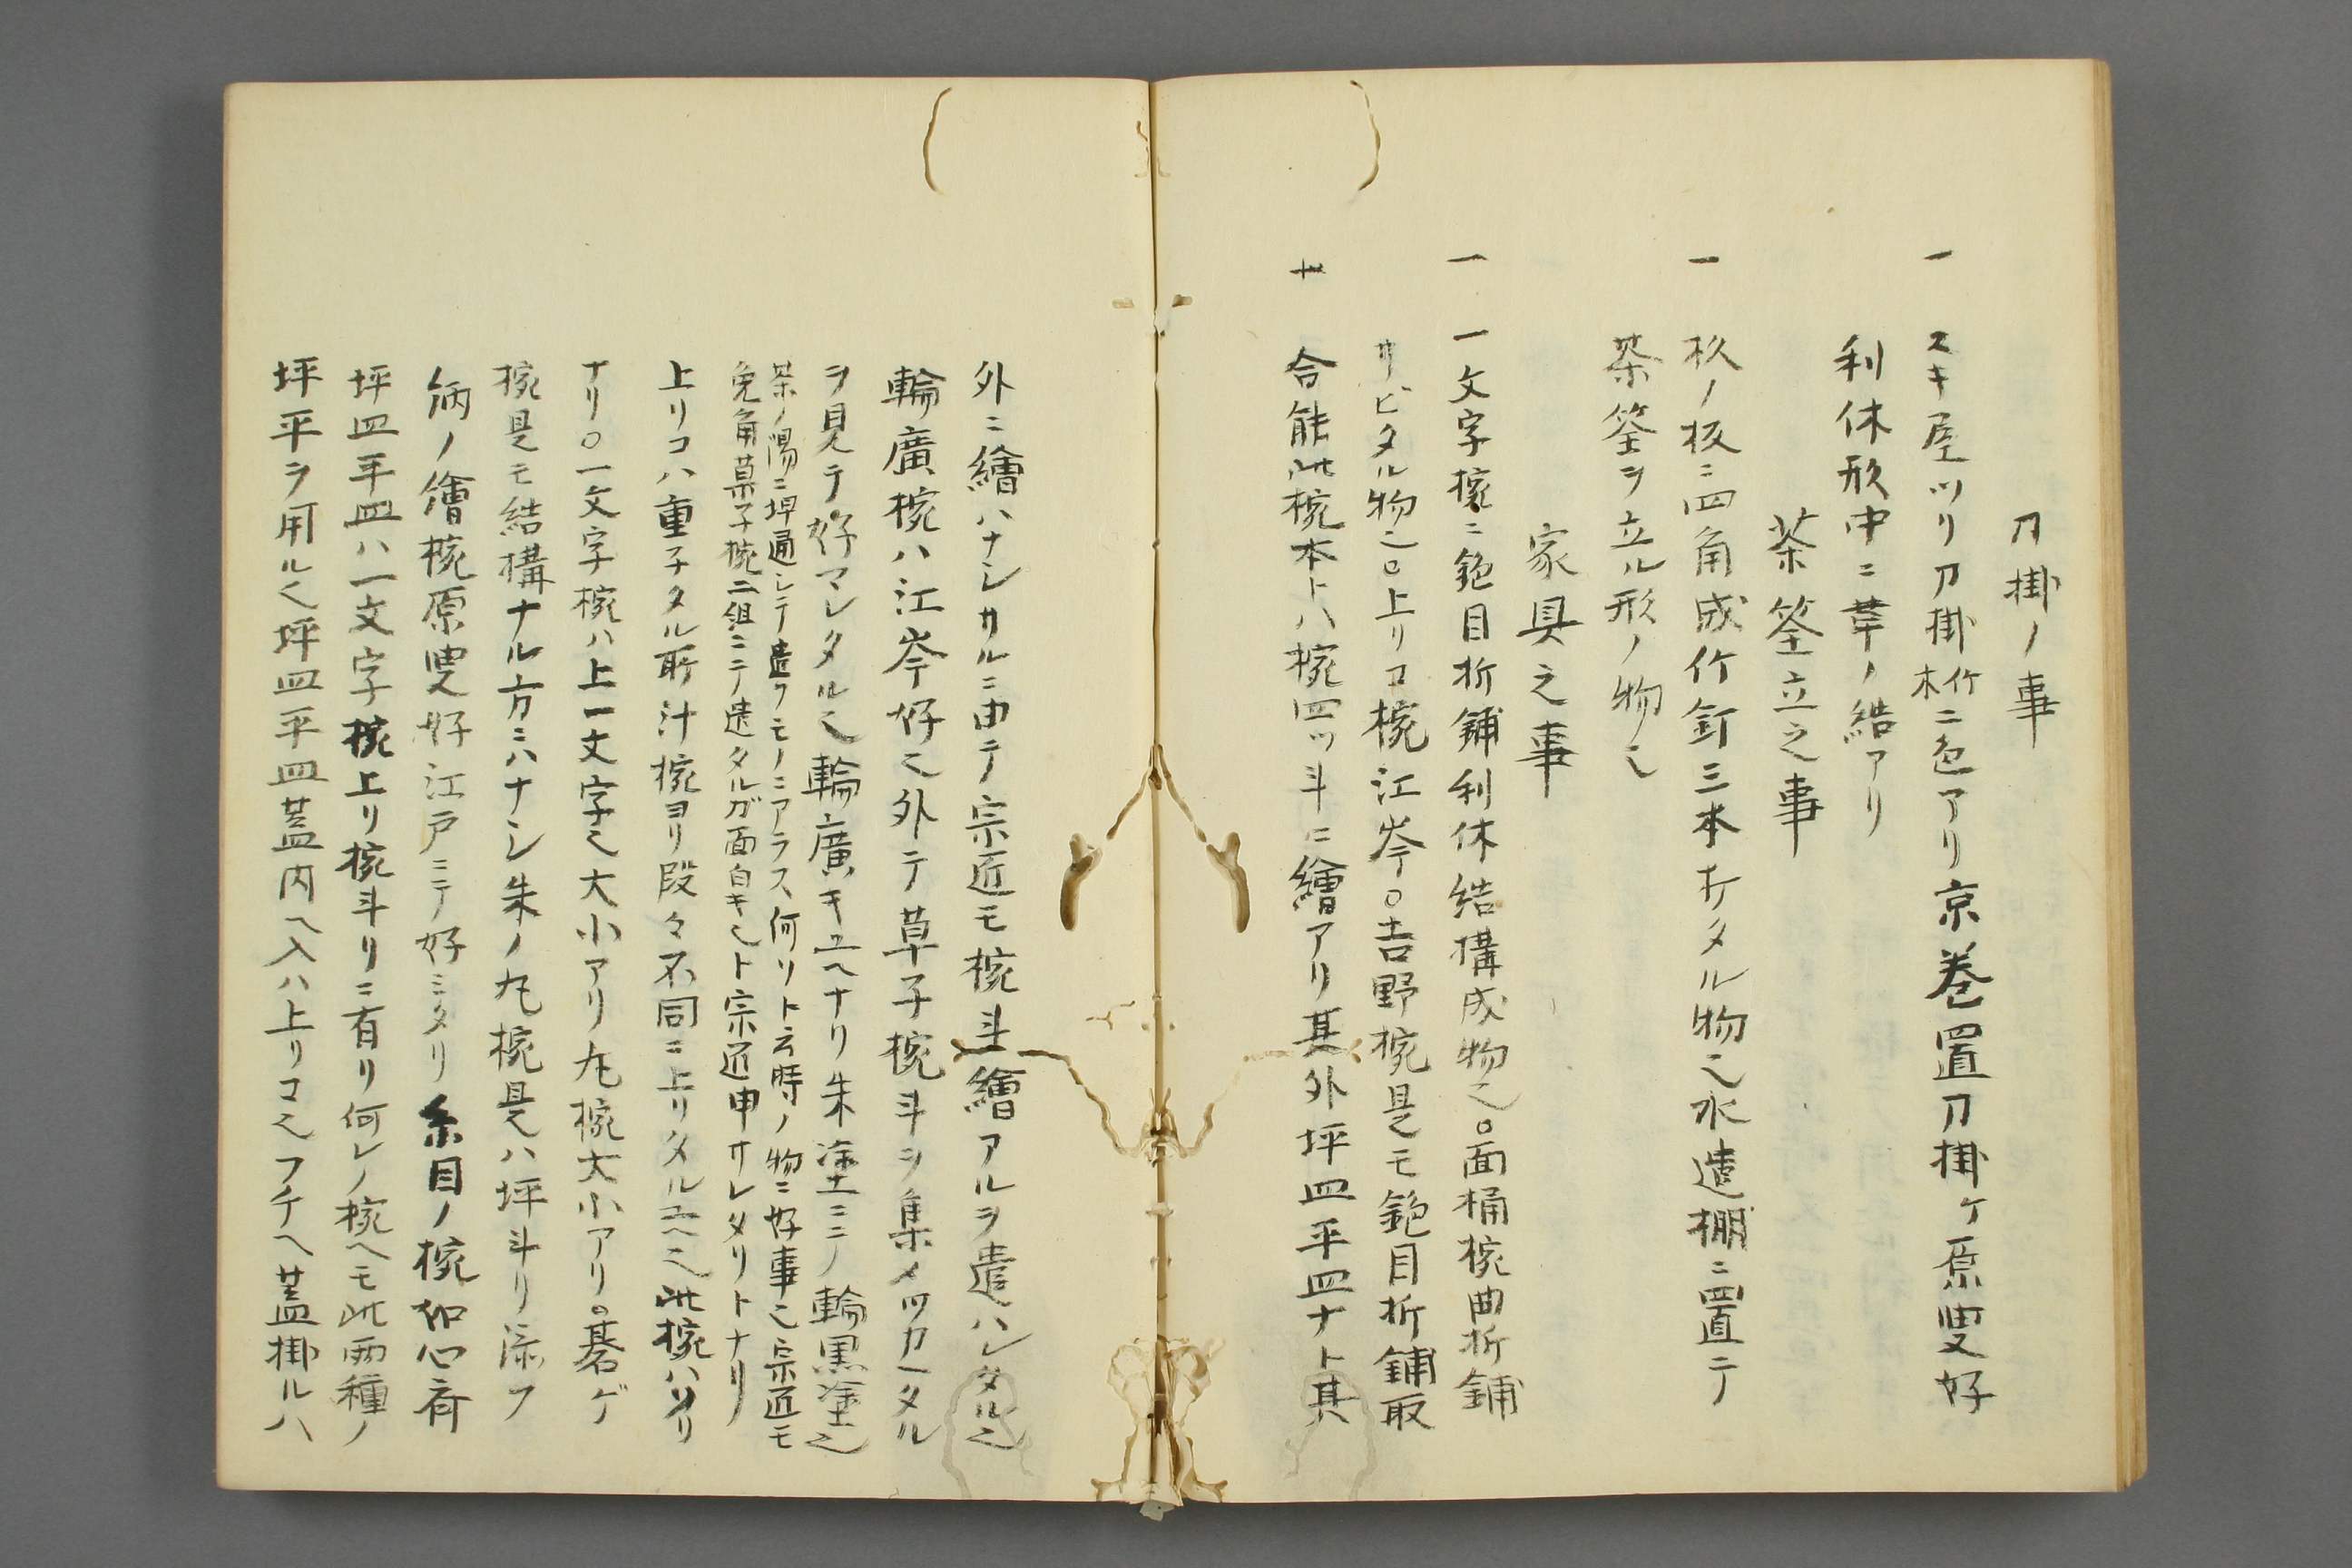 刀掛ノ事
一 スキ屋ツリ刀掛竹木ニ色アリ京巻置刀掛ケ原叟好
利休形中ニ葦ノ結アリ
茶筌立之事
一 杦ノ板ニ四角成竹釘三本サタル物也水遣棚ニ置テ
茶筌ヲ立ル形ノ物也
家具之事
一 一文字椀ニ鉋目折鋪利休結構成物也○面桶椀曲折鋪
サビタル物也○上リコ椀江岑○吉野椀是モ鉋目折鋪取
合能此椀本トハ椀四ツ斗ニ繪アリ其外坪皿平皿ナト其
外ニ繪ハナシサルニ由テ宗匠モ椀斗繪アルヲ遣ハレタル也
輪廣椀ハ江岑好也外テ草子椀斗ヲ集メツカヘタル
ヲ見テ好マレタル也輪廣キユヘナリ朱塗ニ〆輪黒塗也
茶ノ湯ニ埒通シテ遣フモノニアラス何リト云時ノ物ニ好事也宗匠モ
兔角菓子椀二組ニテ遣タルガ面白キ也ト宗匠申サレタリトナリ
上リコハ重子タル所汁椀ヨリ段々不同ニ上リタルユヘ也此椀ハソリ
ナリ○一文字椀ハ上一丈字也大小アリ丸椀大小アリ○碁ゲ
椀是モ結構ナル方ニハナシ朱ノ丸椀是ハ坪斗リ添フ
ノ繪椀原叟好江戸ニテ好ミタリ糸目ノ椀如心斎
坪皿平皿ハ一文字椀上リ椀斗リニ有リ何レノ椀ヘモ此両種ノ
坪平ヲ用ル也坪皿平皿蓋内ヘ入ハ上リコ也フチヘ蓋掛ルハ